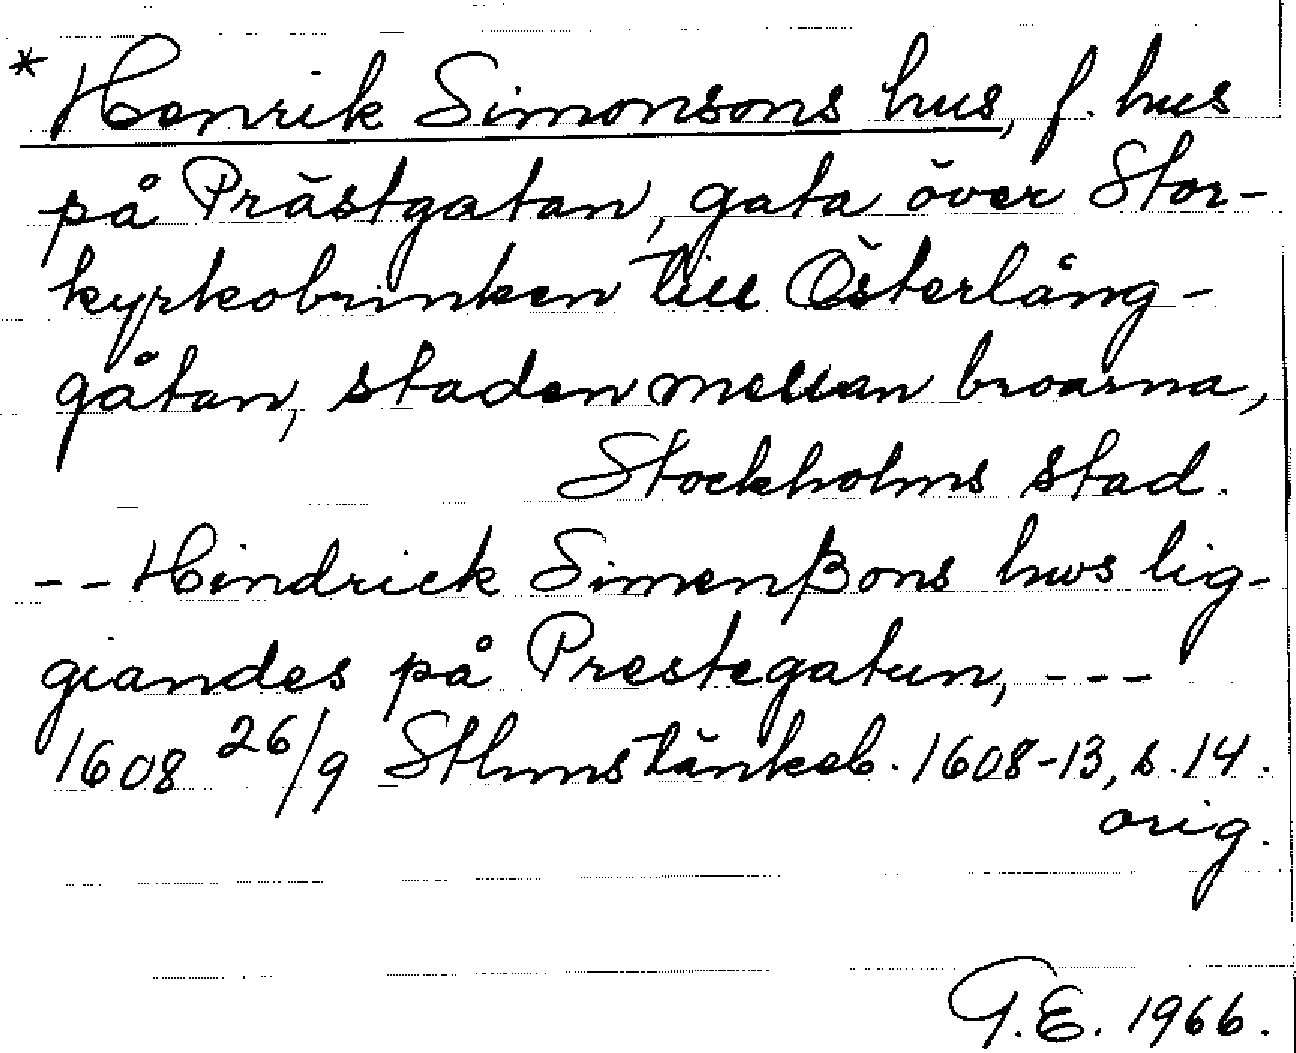 * Henrik Simonsons hus, f. hus
på Prästgatan, gata över Stor-
kyrkobrinken till Österlång-
gatan, staden mellan broarna,
Stockholms stad.
-- Hindrick Simenßons hws lig-
giandes på Prestegatun, ---
1608 26/9 Sthms tänkeb. 1608-13, s. 14.
orig.
G.E. 1966.